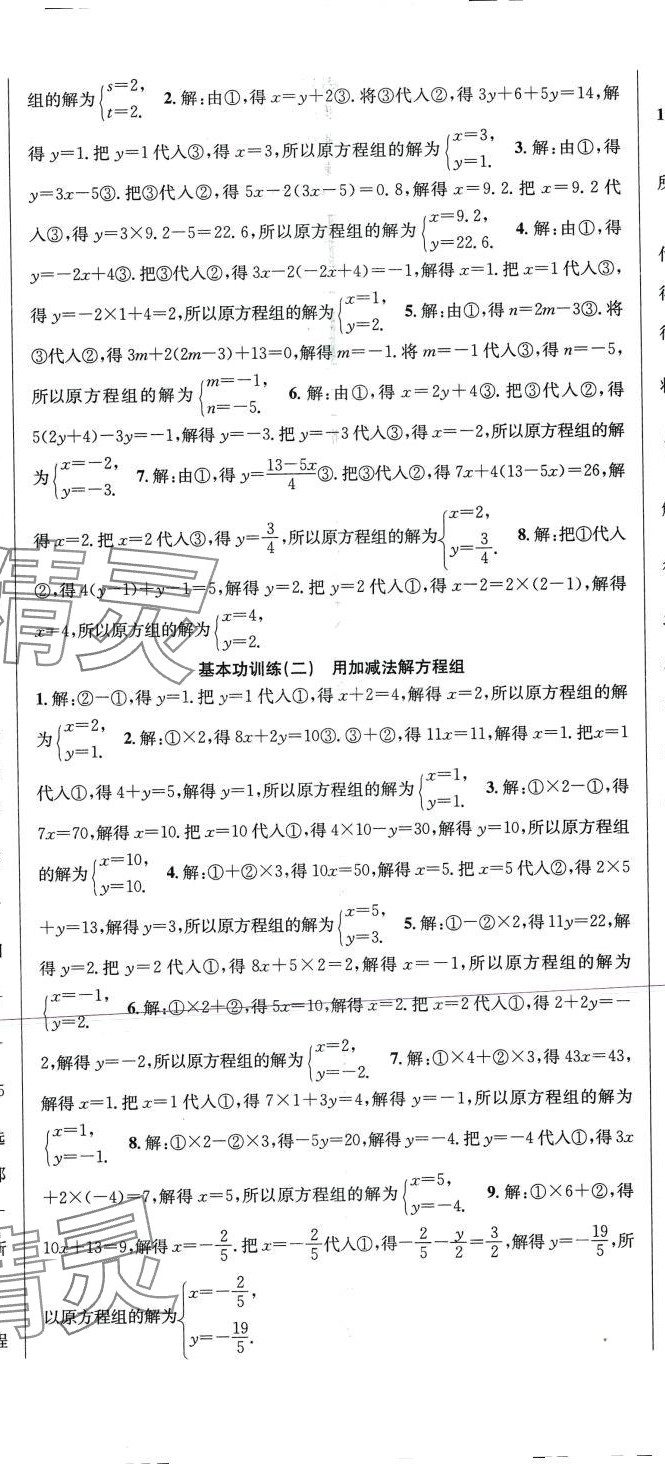 组的解为{s=2, t=2. 2. 解:由①,得 x=y+2③. 将③代入②,得 3y+6+5y=14,解
得 y=1. 把 y=1 代入③,得 x=3,所以原方程组的解为{x=3, y=1. 3. 解:由①,得
y=3x-5③. 把③代入②,得 5x-2(3x-5)=0.8,解得 x=9.2. 把 x=9.2 代
入③,得 y=3×9.2-5=22.6,所以原方程组的解为{x=9.2, y=22.6. 4. 解:由①,得
y=-2x+4③. 把③代入②,得 3x-2(-2x+4)=-1,解得 x=1. 把 x=1 代入③,
得 y=-2×1+4=2,所以原方程组的解为{x=1, y=2. 5. 解:由①,得 n=2m-3③. 将
③代入②,得 3m+2(2m-3)+13=0,解得 m=-1. 将 m=-1 代入③,得 n=-5,
所以原方程组的解为{m=-1, n=-5. 6. 解:由①,得 x=2y+4③. 把③代入②,得
5(2y+4)-3y=-1,解得 y=-3. 把 y=-3 代入③,得 x=-2,所以原方程组的解
为{x=-2, y=-3. 7. 解:由①,得 y=(13-5x)/4③. 把③代入②,得 7x+4(13-5x)=26,解
得 x=2. 把 x=2 代入③,得 y=3/4,所以原方程组的解为{x=2, y=3/4. 8. 解:把①代入
②,得 4(y-1)+y-1=5,解得 y=2. 把 y=2 代入①,得 x-2=2×(2-1),解得
x=4,所以原方组的解为{x=4, y=2.
基本功训练(二) 用加减法解方程组
1. 解:②-①,得 y=1. 把 y=1 代入①,得 x+2=4,解得 x=2,所以原方程组的解
为{x=2, y=1. 2. 解:①×2,得 8x+2y=10③. ③+②,得 11x=11,解得 x=1. 把x=1
代入①,得 4+y=5,解得 y=1,所以原方程组的解为{x=1, y=1. 3. 解:①×2-①,得
7x=70,解得 x=10. 把 x=10 代入①,得 4×10-y=30,解得 y=10,所以原方程组
的解为{x=10, y=10. 4. 解:①+②×3,得 10x=50,解得 x=5. 把 x=5 代入②,得 2×5
+y=13,解得 y=3,所以原方程组的解为{x=5, y=3. 5. 解:①-②×2,得 11y=22,解
得 y=2. 把 y=2 代入①,得 8x+5×2=2,解得 x=-1,所以原方程组的解为
{x=-1, y=2. 6. 解:①×2+②,得 5x=10,解得 x=2. 把 x=2 代入①,得 2+2y=-
2,解得 y=-2,所以原方程组的解为{x=2, y=-2. 7. 解:①×4+②×3,得 43x=43,
解得 x=1. 把 x=1 代入①,得 7×1+3y=4,解得 y=-1,所以原方程组的解为
{x=1, y=-1. 8. 解:①×2-②×3,得-5y=20,解得 y=-4. 把 y=-4 代入①,得 3x
+2×(-4)=7,解得 x=5,所以原方程组的解为{x=5, y=-4. 9. 解:①×6+②,得
10x+13=9,解得 x=-2/5. 把 x=-2/5代入①,得-2/5-y/2=3/2,解得 y=-19/5,所
以原方程组的解为{x=-2/5, y=-19/5.
精灵
精灵